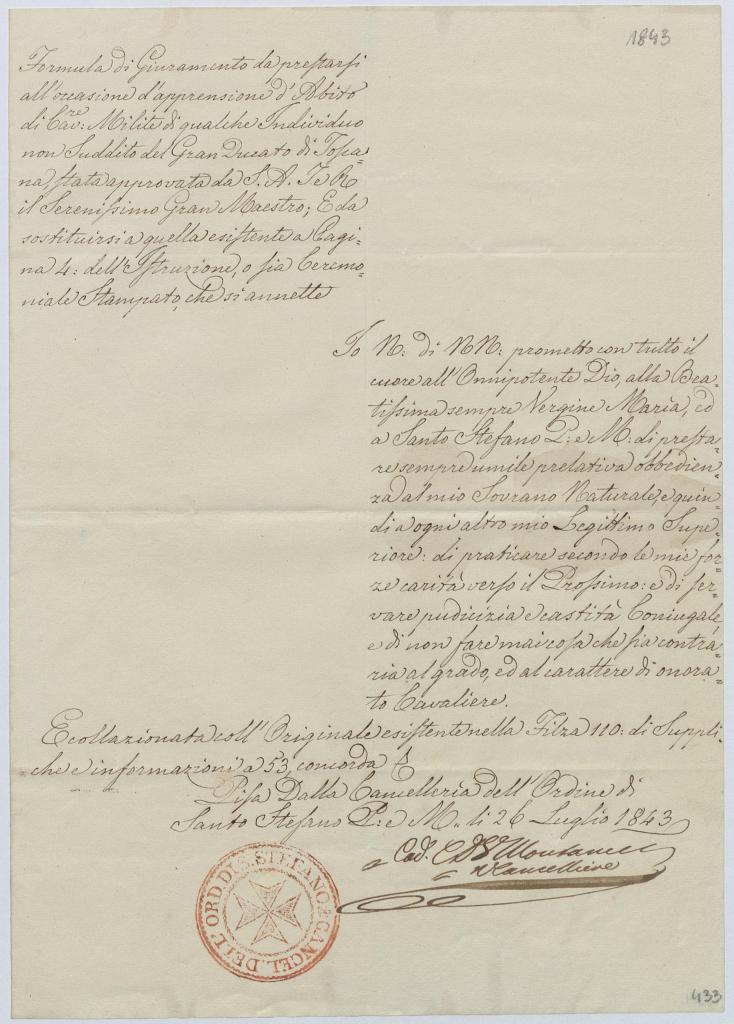 1843
Formula di Giuramento da prestarsi
all'occasione d'apprensione d'Abito
di Cav:re Milite di qualche Individuo
non Suddito del Gran Ducato di Tosca=
na, stata approvata da S. A. I. e R.
il Serenissimo Gran Maestro; E da
sostituirsi a quella esistente a Pagi=
na 4: dell'Istruzione, o sia Ceremo=
niale Stampato, che si annette
Io N: di NN: prometto con tutto il
cuore all'Onnipotente Dio, alla Bea=
tissima sempre Vergine Maria, ed
a Santo Stefano P: e M: di presta=
re sempre umile e relativa obbedien=
za al mio Sovrano Naturale, e quin=
di a ogni altro mio Legittimo Supe=
riore: di praticare secondo le mie for=
ze carità verso il Prossimo: e di ser=
vare pudicizia e castità Coniugale,
e di non fare mai cosa che sia contra=
ria al grado, ed al carattere di onora=
to Cavaliere.
E collazionata coll'Originale esistente nella Filza 110: di Suppli=
che e informazioni a 53, concorda
Pisa Dalla Cancelleria dell'Ordine di
Santo Stefano P: e M. li 26 Luglio 1843
Cancelliere
DELL'ORD. DI S. STEFANO P. CANCEL.
433